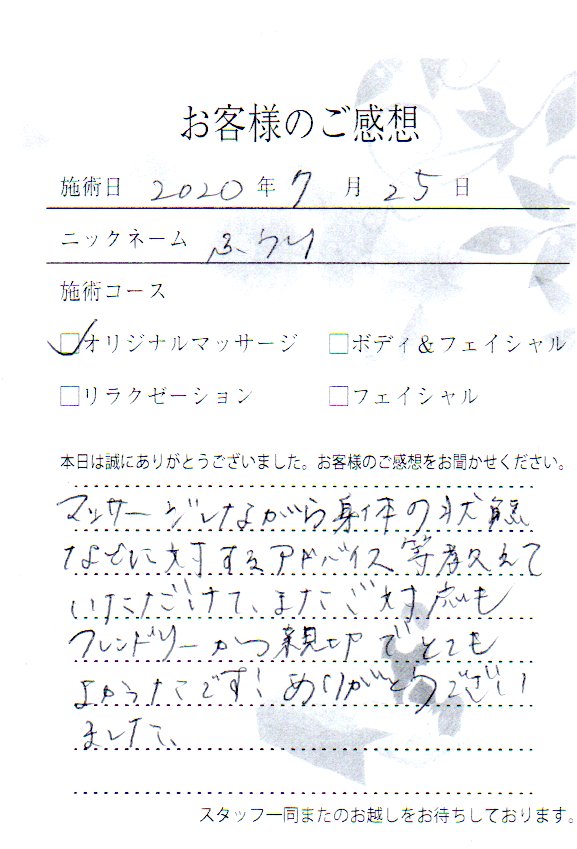 お客様のご感想
施術日 2020年7月25日
ニックネーム ふうり
施術コース
オリジナルマッサージ ボディ&フェイシャル
リラクゼーション フェイシャル
本日は誠にありがとうございました。お客様のご感想をお聞かせください。
マッサージしながら身体の状態
などに対するアドバイス等教えて
いただけて、またご対応も
フレンドリーかつ親切でとても
よかったです!ありがとうござい
ました、
スタッフ一同またのお越しをお待ちしております。